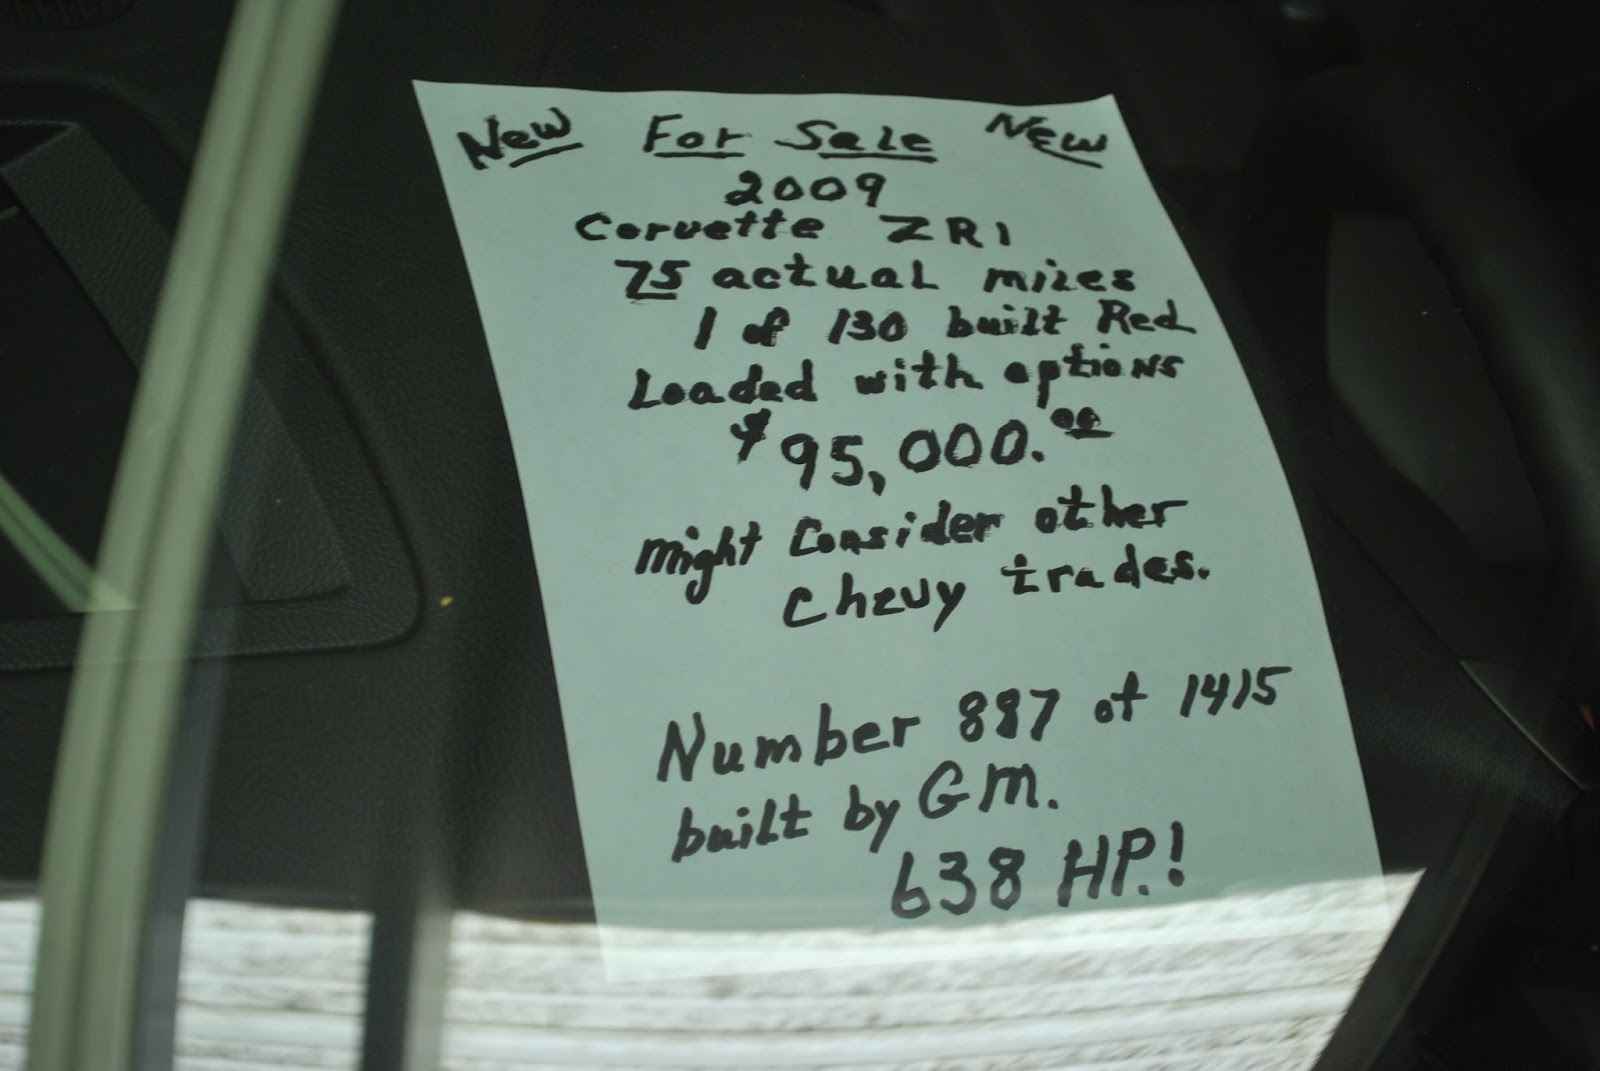 New For Sale New
2009
Corvette ZR1
75 actual miles
1 of 130 built Red
Loaded with options
$95,000.00
might consider other
chevy trades.
Number 887 of 1415
built by GM.
638 HP.!